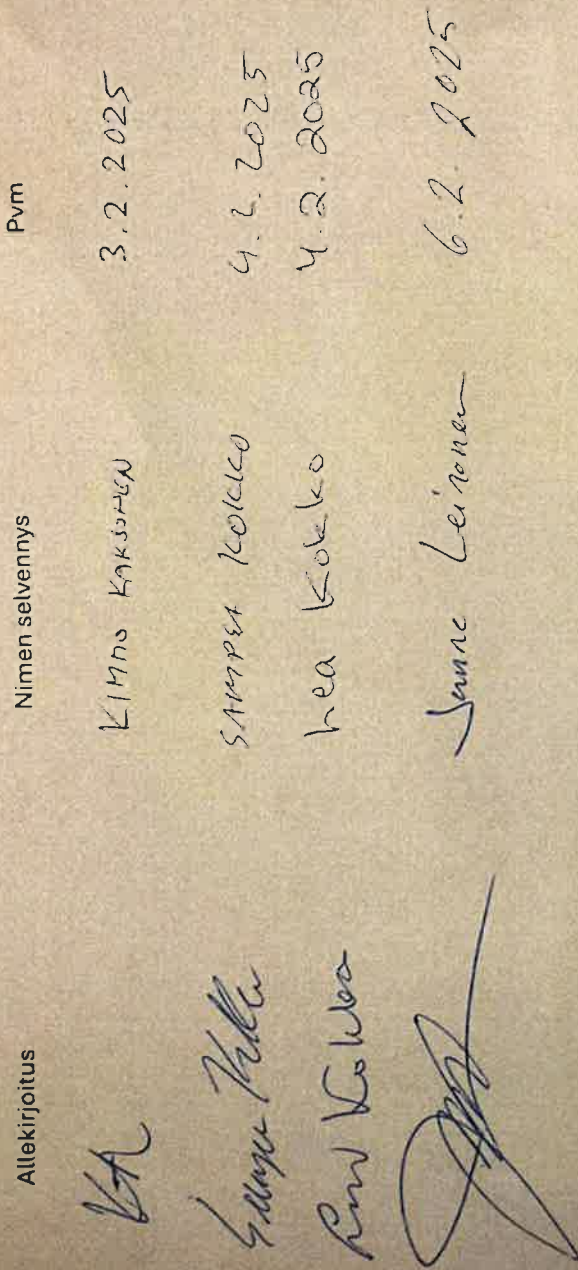 Allekirjoitus Nimen selvennys Pvm
KIMMO KAKSONEN 3.2.2025
SAMPSA KOKKO 4.2.2025
Lea Kokko 4.2.2025
Janne Leinonen 6.2.2025